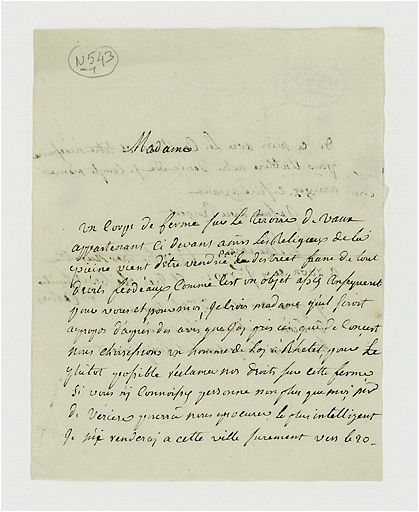 N543
Madame
un Corps de ferme sur le teroire de vaux
appartenant Ci devans a mrs les Religieux de la
piscine vient d'être vendüe au district franc de tout
droits feodeaux, Comme c'est un objet assez Consequent
pour vous et pour moi, je crois madame qu'il seroit
apropos d'après des avis que j'ai pris ici que de Concert
nous choisissions un homme de loi a Rhetel pour le
plutot possible reclamer nos droits sur cette ferme
si vous n'y Connoissez personne non plus que moi,
de pourra nous procurer le plus intelligent
je me renderai a cette ville surement vers le 20